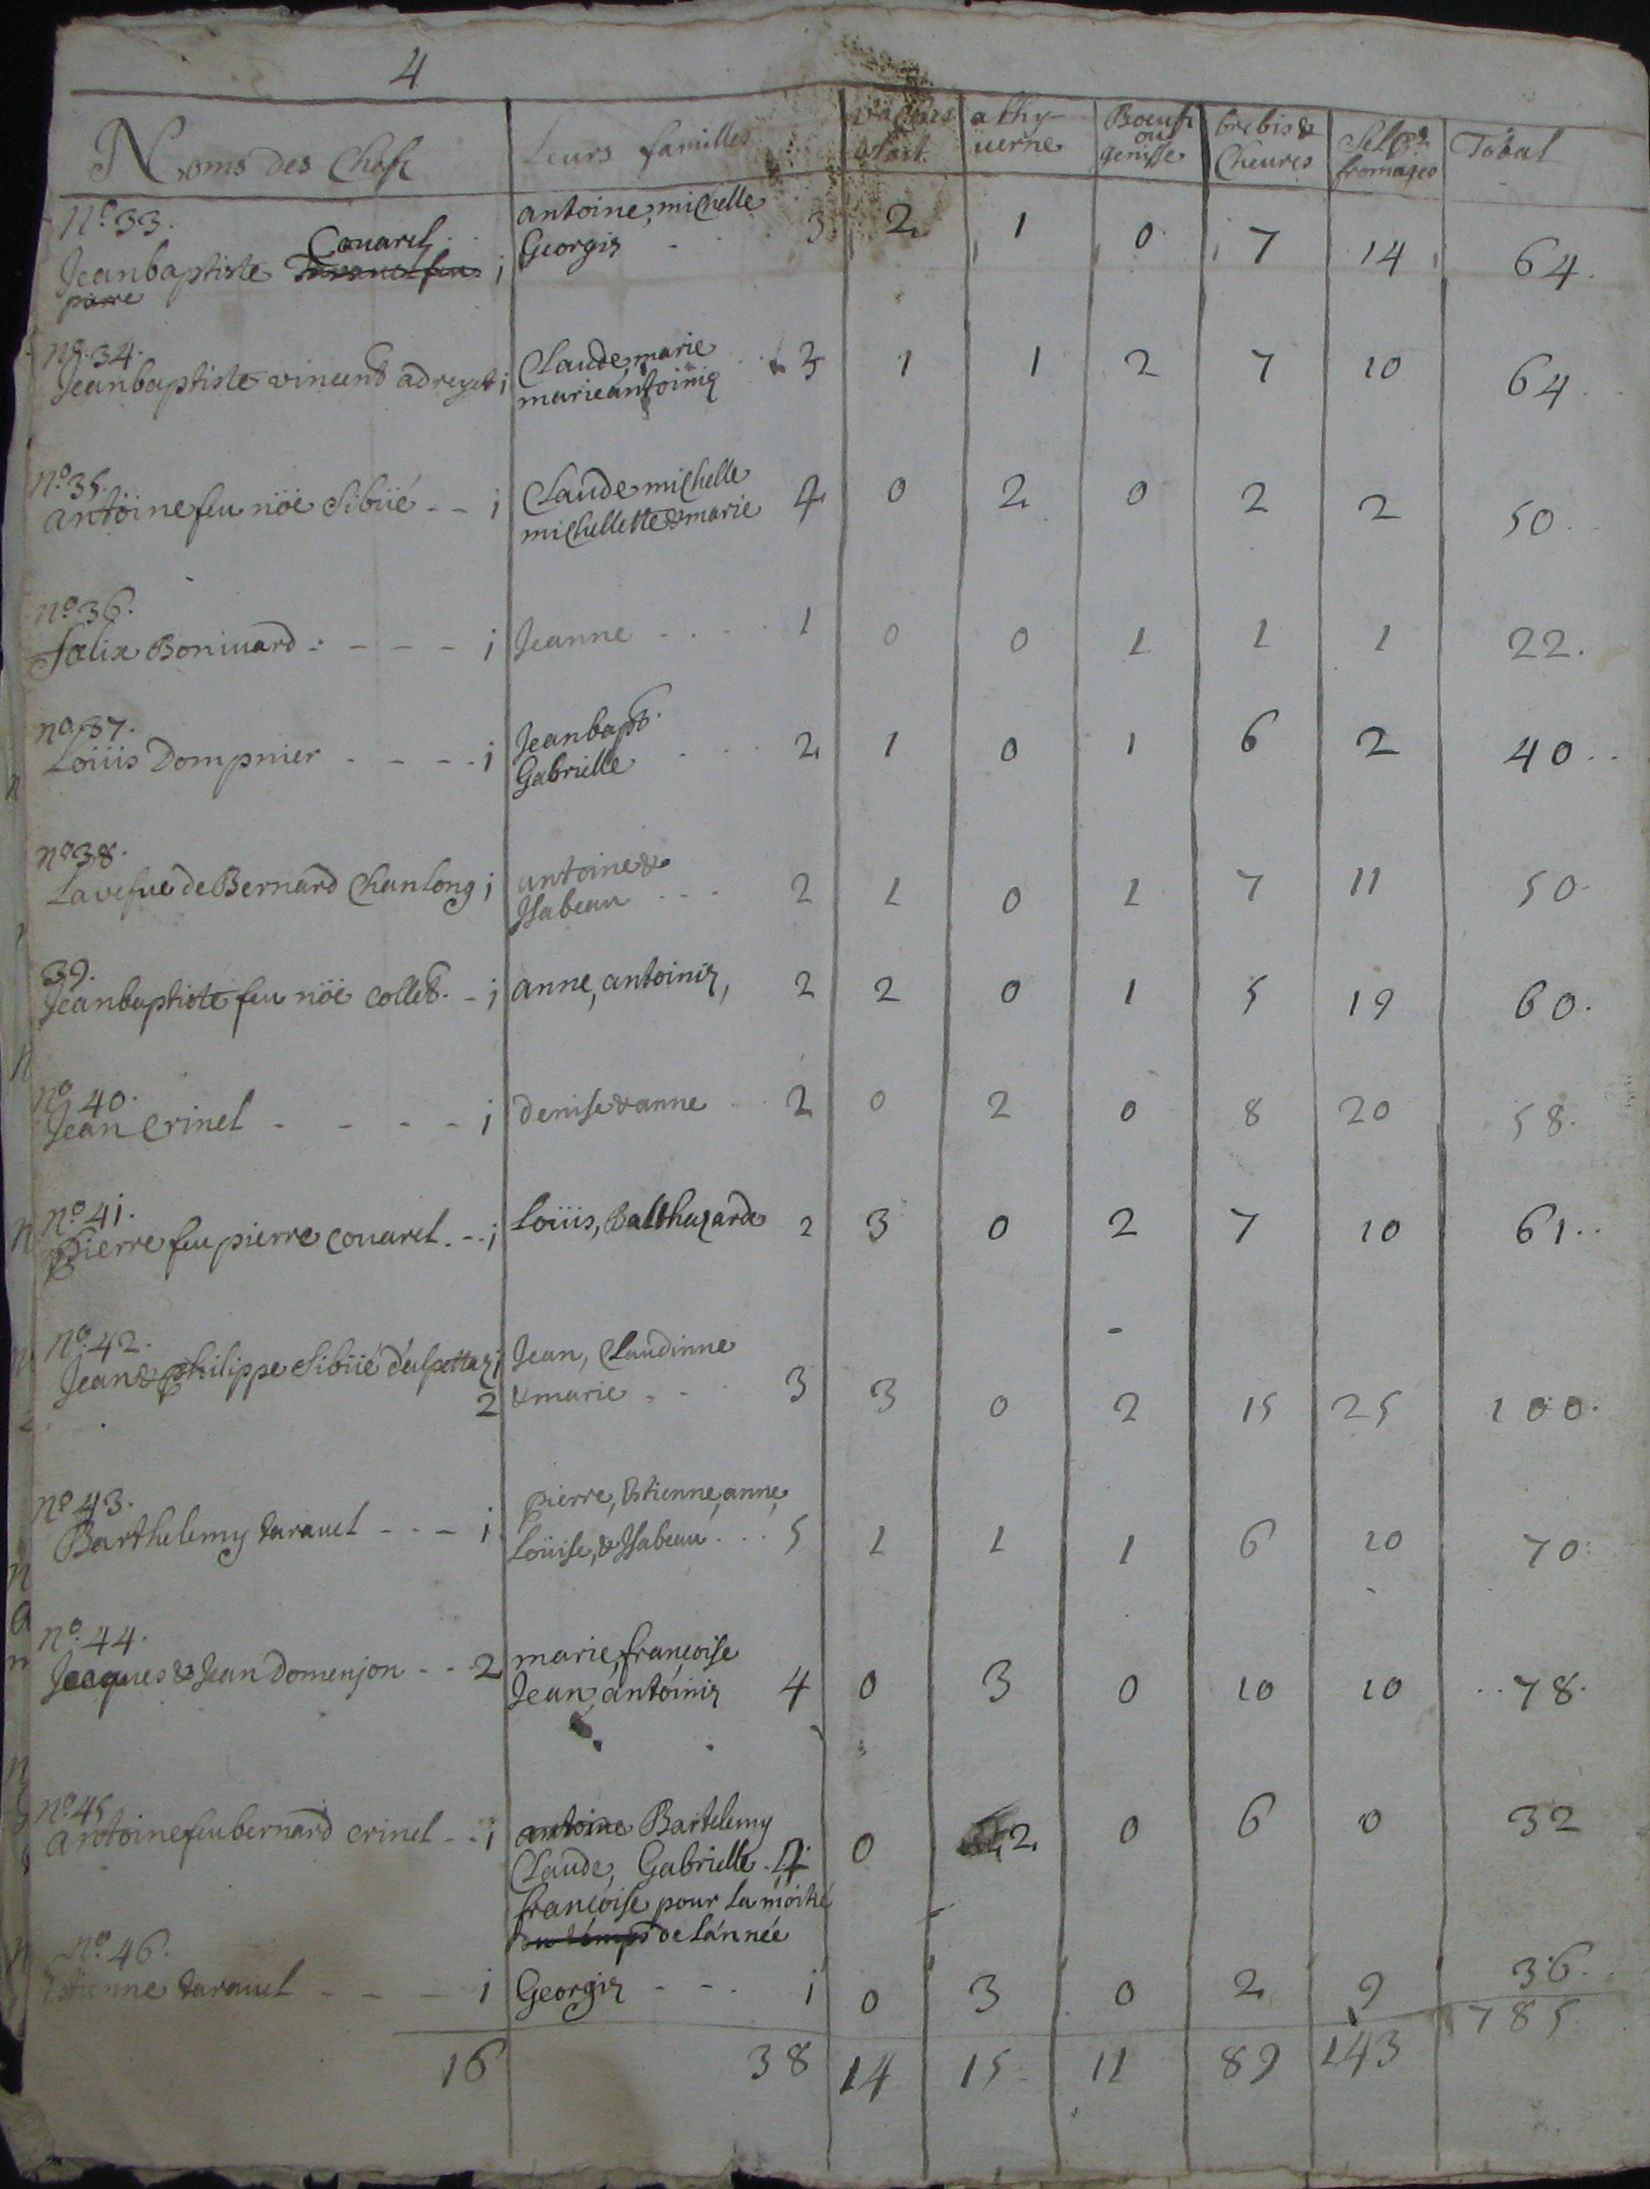 4
Noms des Chefs Leurs familles vaches a lait a l'hyuerne Boeufs ou genisse brebis & Cheures Sel pr fromages Total
No. 33.
Couarel antoine, michelle
Jeanbaptiste Tarauel feu i Georgie 3 2 1 0 7 14 64.
pierre
No. 34. Claude, marie
Jeanbaptiste vincend adreyet i marieantoinie 3 1 1 2 7 10 64.
No. 35. Claude michelle
antoine feu nöe Sibüé - - i michellette & marie 4 0 2 0 2 2 50.
No. 36.
Falix Boniuard - - - i Jeanne 1 0 0 1 1 1 22.
no. 37. Jeanbapt.
Loüis Dompnier - - - i Gabrielle 2 1 0 1 6 2 40..
no. 38. antoine &
La vefue de Bernard Chanlong i Isabeau 2 1 0 1 7 11 50.
39.
Jeanbaptiste feu nöe Collet. - i anne, antoinie, 2 2 0 1 5 19 60.
No. 40.
Jean Crinel - - - - i denise & anne 2 0 2 0 8 20 58.
No. 41.
Pierre feu pierre Couarel - - i Loüis, Balthazarde 2 3 0 2 7 10 61..
No. 42. Jean, Claudinne
Jean & philippe Sibüé i
2 & marie 3 3 0 2 15 25 100.
No. 43. pierre, Estienne, anne,
Barthelemy Tarauel - - - i Loüise, & Isabeau 5 1 1 1 6 10 70.
No. 44. marie, francoise
Jacques & Jean Domenjon - - 2 Jean, antoinie 4 0 3 0 10 10 78.
No. 45 antoine Bartelemy
antoine feu bernard Crinel - - i Claude, Gabrielle 4 0 2 0 6 0 32
francoise pour la moitié
du temps de l'année
No. 46.
Estienne Tarauel - - - i Georgie - - i 0 3 0 2 9 36.
16 38 14 15 11 89 143 785